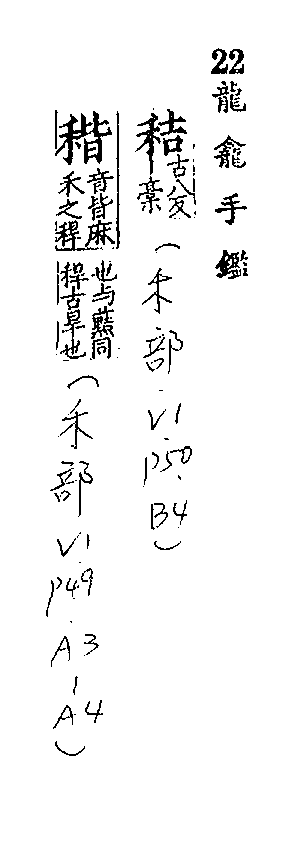 22龍龕手鑑
秸古八反
藁(禾部 V1 P50. B4)
稭音皆麻
禾之稈
也与䕸同
稈古旱也(禾部 V1 P49. A3-A4)